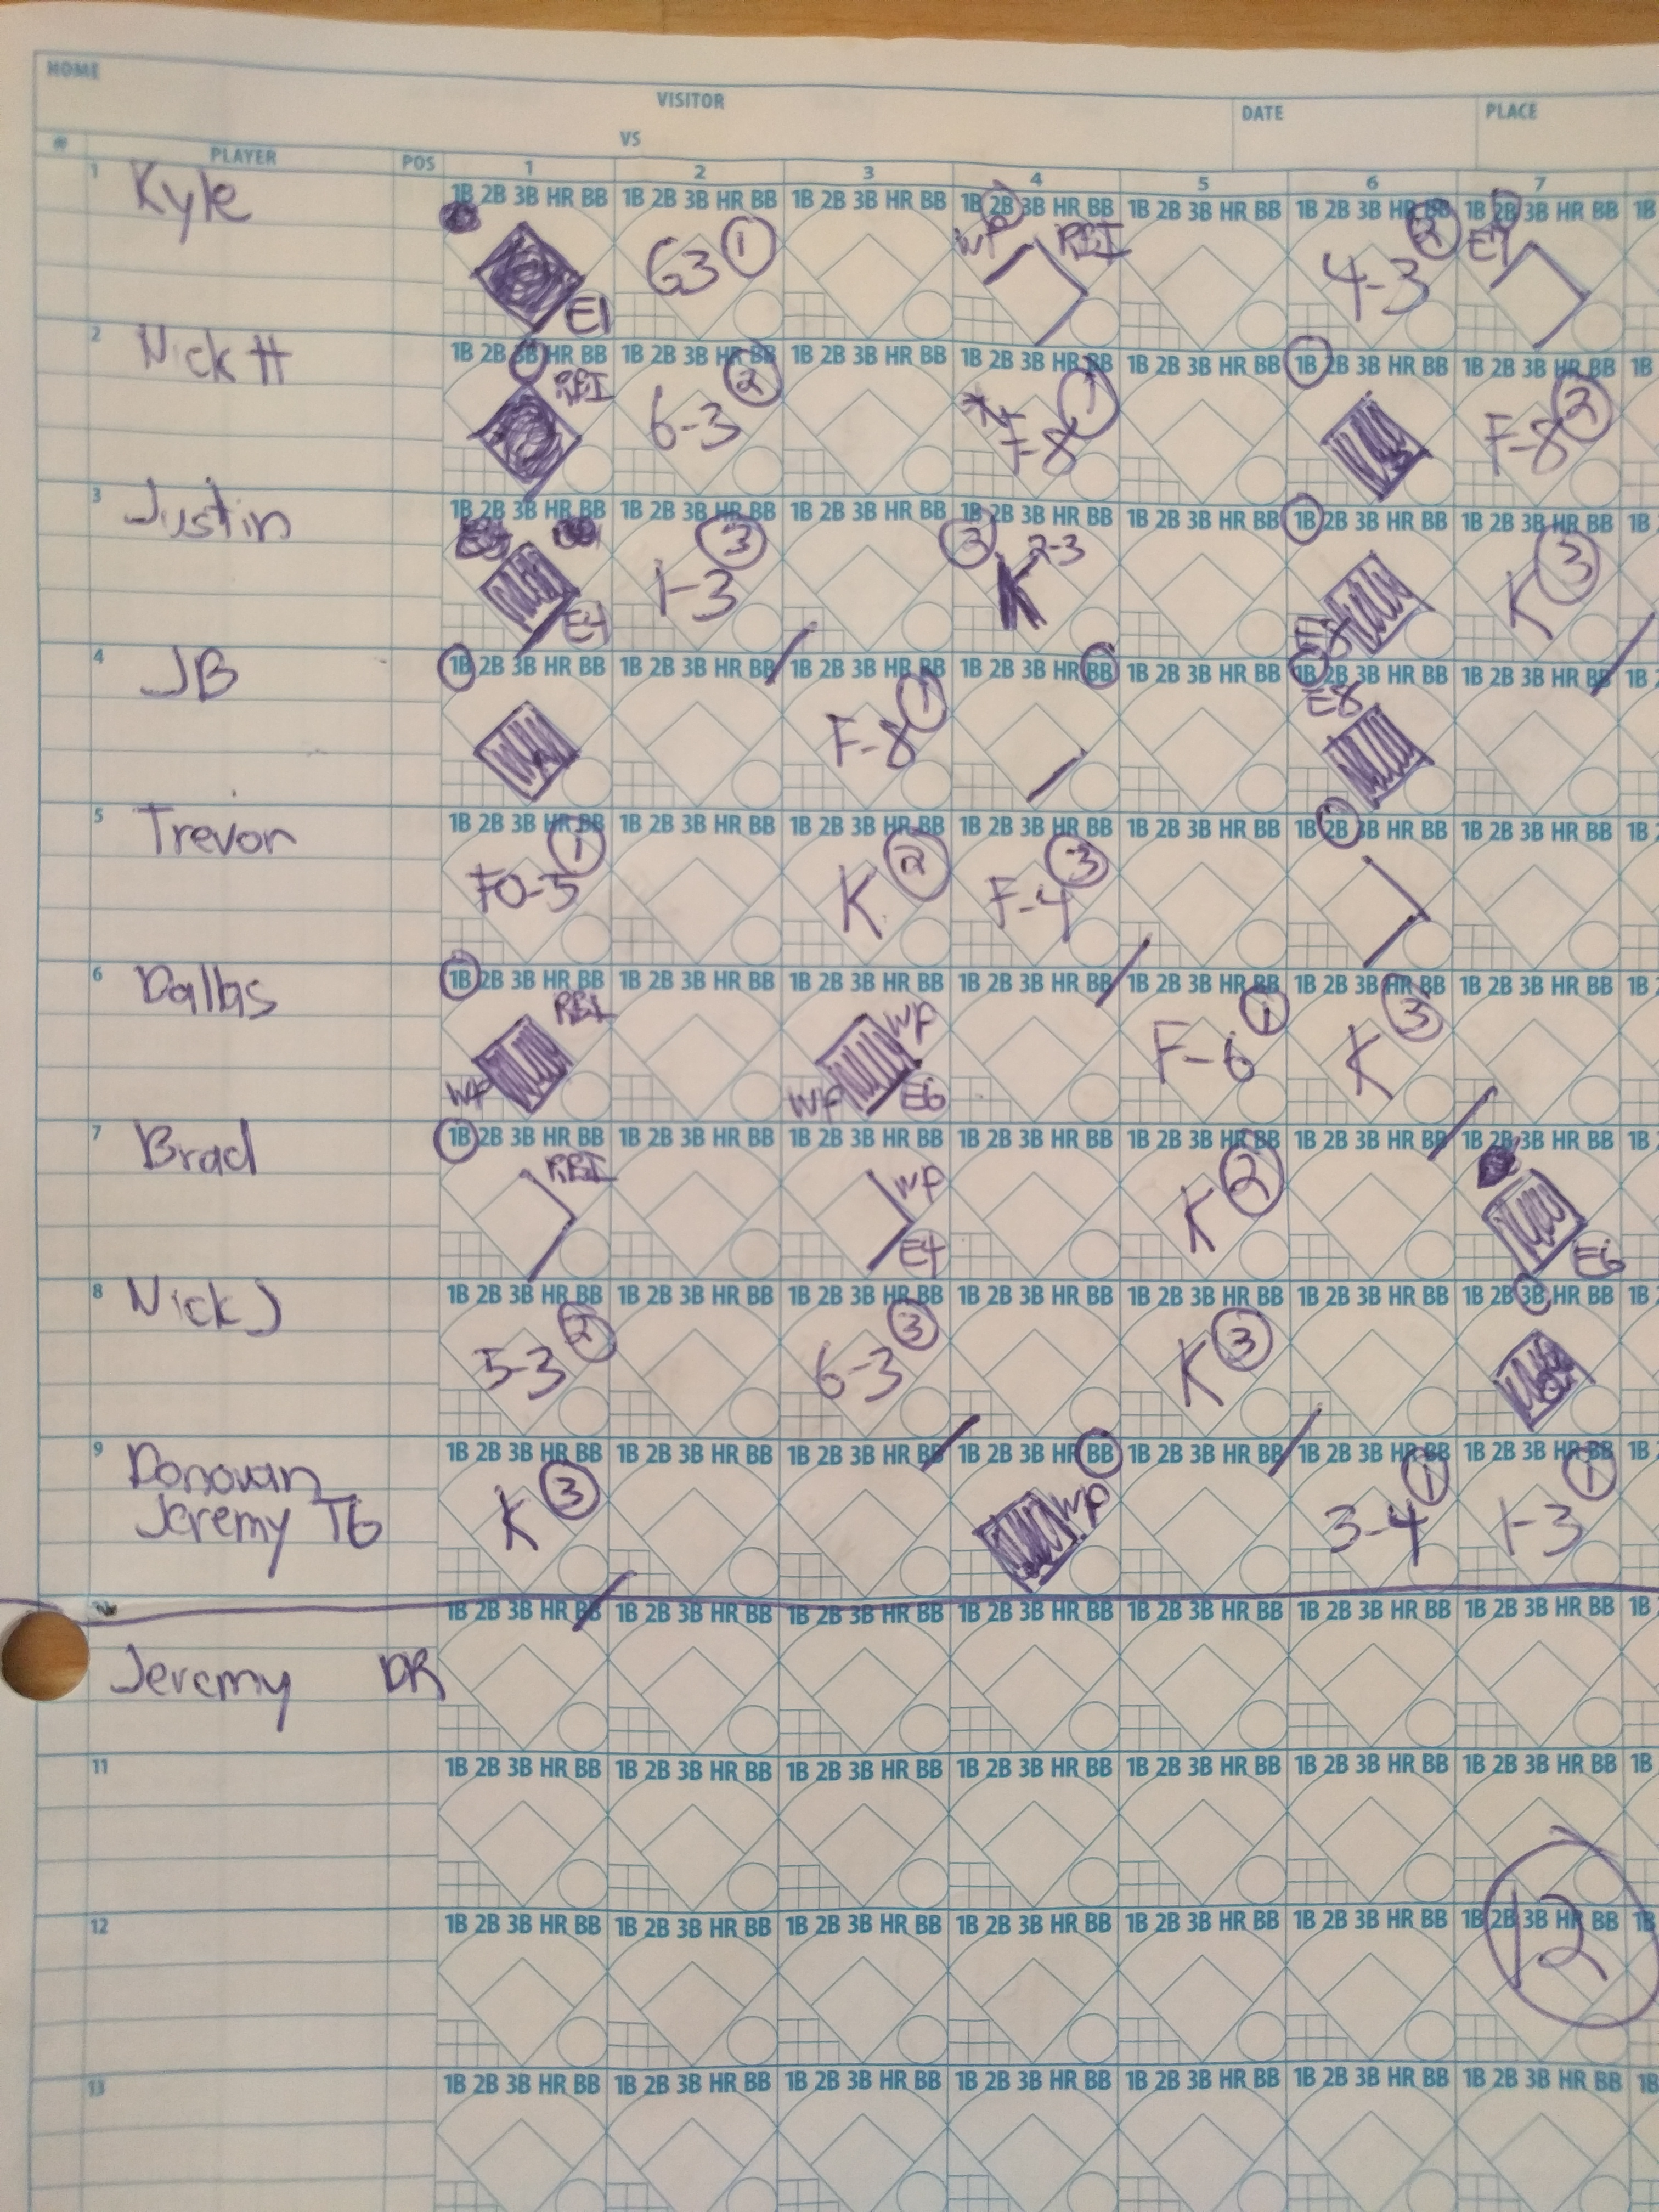 HOME
VISITOR
DATE
PLACE
VS
# PLAYER POS 1 2 3 4 5 6 7
1 Kyle
1B 2B 3B HR BB 1B 2B 3B HR BB 1B 2B 3B HR BB 1B 2B 3B HR BB 1B 2B 3B HR BB 1B 2B 3B HR BB 1B 2B 3B HR BB 1B
E1 63 1 WP RBI 4-3 2 E7
2 Nick H
1B 2B 3B HR BB 1B 2B 3B HR BB 1B 2B 3B HR BB 1B 2B 3B HR BB 1B 2B 3B HR BB 1B 2B 3B HR BB 1B 2B 3B HR BB 1B
RBI 6-3 2 F-8 1 F-8 2
3 Justin
1B 2B 3B HR BB 1B 2B 3B HR BB 1B 2B 3B HR BB 1B 2B 3B HR BB 1B 2B 3B HR BB 1B 2B 3B HR BB 1B 2B 3B HR BB 1B
E4 1-3 3 2 K 2-3 E8 K 3
4 JB
1B 2B 3B HR BB 1B 2B 3B HR BB 1B 2B 3B HR BB 1B 2B 3B HR BB 1B 2B 3B HR BB 1B 2B 3B HR BB 1B 2B 3B HR BB 1B
F-8 1 E8
5 Trevor
1B 2B 3B HR BB 1B 2B 3B HR BB 1B 2B 3B HR BB 1B 2B 3B HR BB 1B 2B 3B HR BB 1B 2B 3B HR BB 1B 2B 3B HR BB 1B
FO-5 1 K 2 F-4 3
6 Dallas
1B 2B 3B HR BB 1B 2B 3B HR BB 1B 2B 3B HR BB 1B 2B 3B HR BB 1B 2B 3B HR BB 1B 2B 3B HR BB 1B 2B 3B HR BB 1B
RBI WP WP WP E6 F-6 1 K 3
7 Brad
1B 2B 3B HR BB 1B 2B 3B HR BB 1B 2B 3B HR BB 1B 2B 3B HR BB 1B 2B 3B HR BB 1B 2B 3B HR BB 1B 2B 3B HR BB 1B
RBI WP E4 K 2 E6
8 Nick J
1B 2B 3B HR BB 1B 2B 3B HR BB 1B 2B 3B HR BB 1B 2B 3B HR BB 1B 2B 3B HR BB 1B 2B 3B HR BB 1B 2B 3B HR BB 1B
5-3 2 6-3 3 K 3
9 Donovan
1B 2B 3B HR BB 1B 2B 3B HR BB 1B 2B 3B HR BB 1B 2B 3B HR BB 1B 2B 3B HR BB 1B 2B 3B HR BB 1B 2B 3B HR BB 1B
Jeremy T6 K 3 WP 3-4 1 1-3 1
1B 2B 3B HR BB 1B 2B 3B HR BB 1B 2B 3B HR BB 1B 2B 3B HR BB 1B 2B 3B HR BB 1B 2B 3B HR BB 1B 2B 3B HR BB 1B
Jeremy DR
11 1B 2B 3B HR BB 1B 2B 3B HR BB 1B 2B 3B HR BB 1B 2B 3B HR BB 1B 2B 3B HR BB 1B 2B 3B HR BB 1B 2B 3B HR BB 1B
12 1B 2B 3B HR BB 1B 2B 3B HR BB 1B 2B 3B HR BB 1B 2B 3B HR BB 1B 2B 3B HR BB 1B 2B 3B HR BB 1B 2B 3B HR BB 1B
12
13 1B 2B 3B HR BB 1B 2B 3B HR BB 1B 2B 3B HR BB 1B 2B 3B HR BB 1B 2B 3B HR BB 1B 2B 3B HR BB 1B 2B 3B HR BB 1B